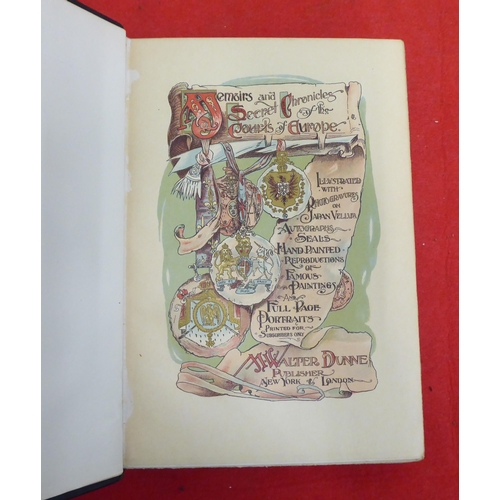 Memoirs and
Secret Chronicles
of the
Courts of Europe.
Illustrated
with
Photogravures
on
Japan Vellum
Autographs
Seals
Hand Painted
Reproductions
of
Famous
Paintings
and
Full Page
Portraits
Printed for
Subscribers only
M Walter Dunne
Publisher
New York & London